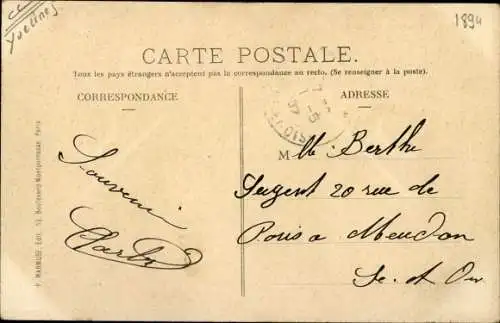 Yvelines
1894
CARTE POSTALE.
Tous les pays étrangers n'acceptent pas la correspondance au recto. (Se renseigner à la poste).
CORRESPONDANCE
ADRESSE
Souvenir
Mlle Berthe
20 rue de
Paris a Meudon
S. et Oise
P. MARMUSE, Édit. 13, Boulevard Montparnasse, Paris